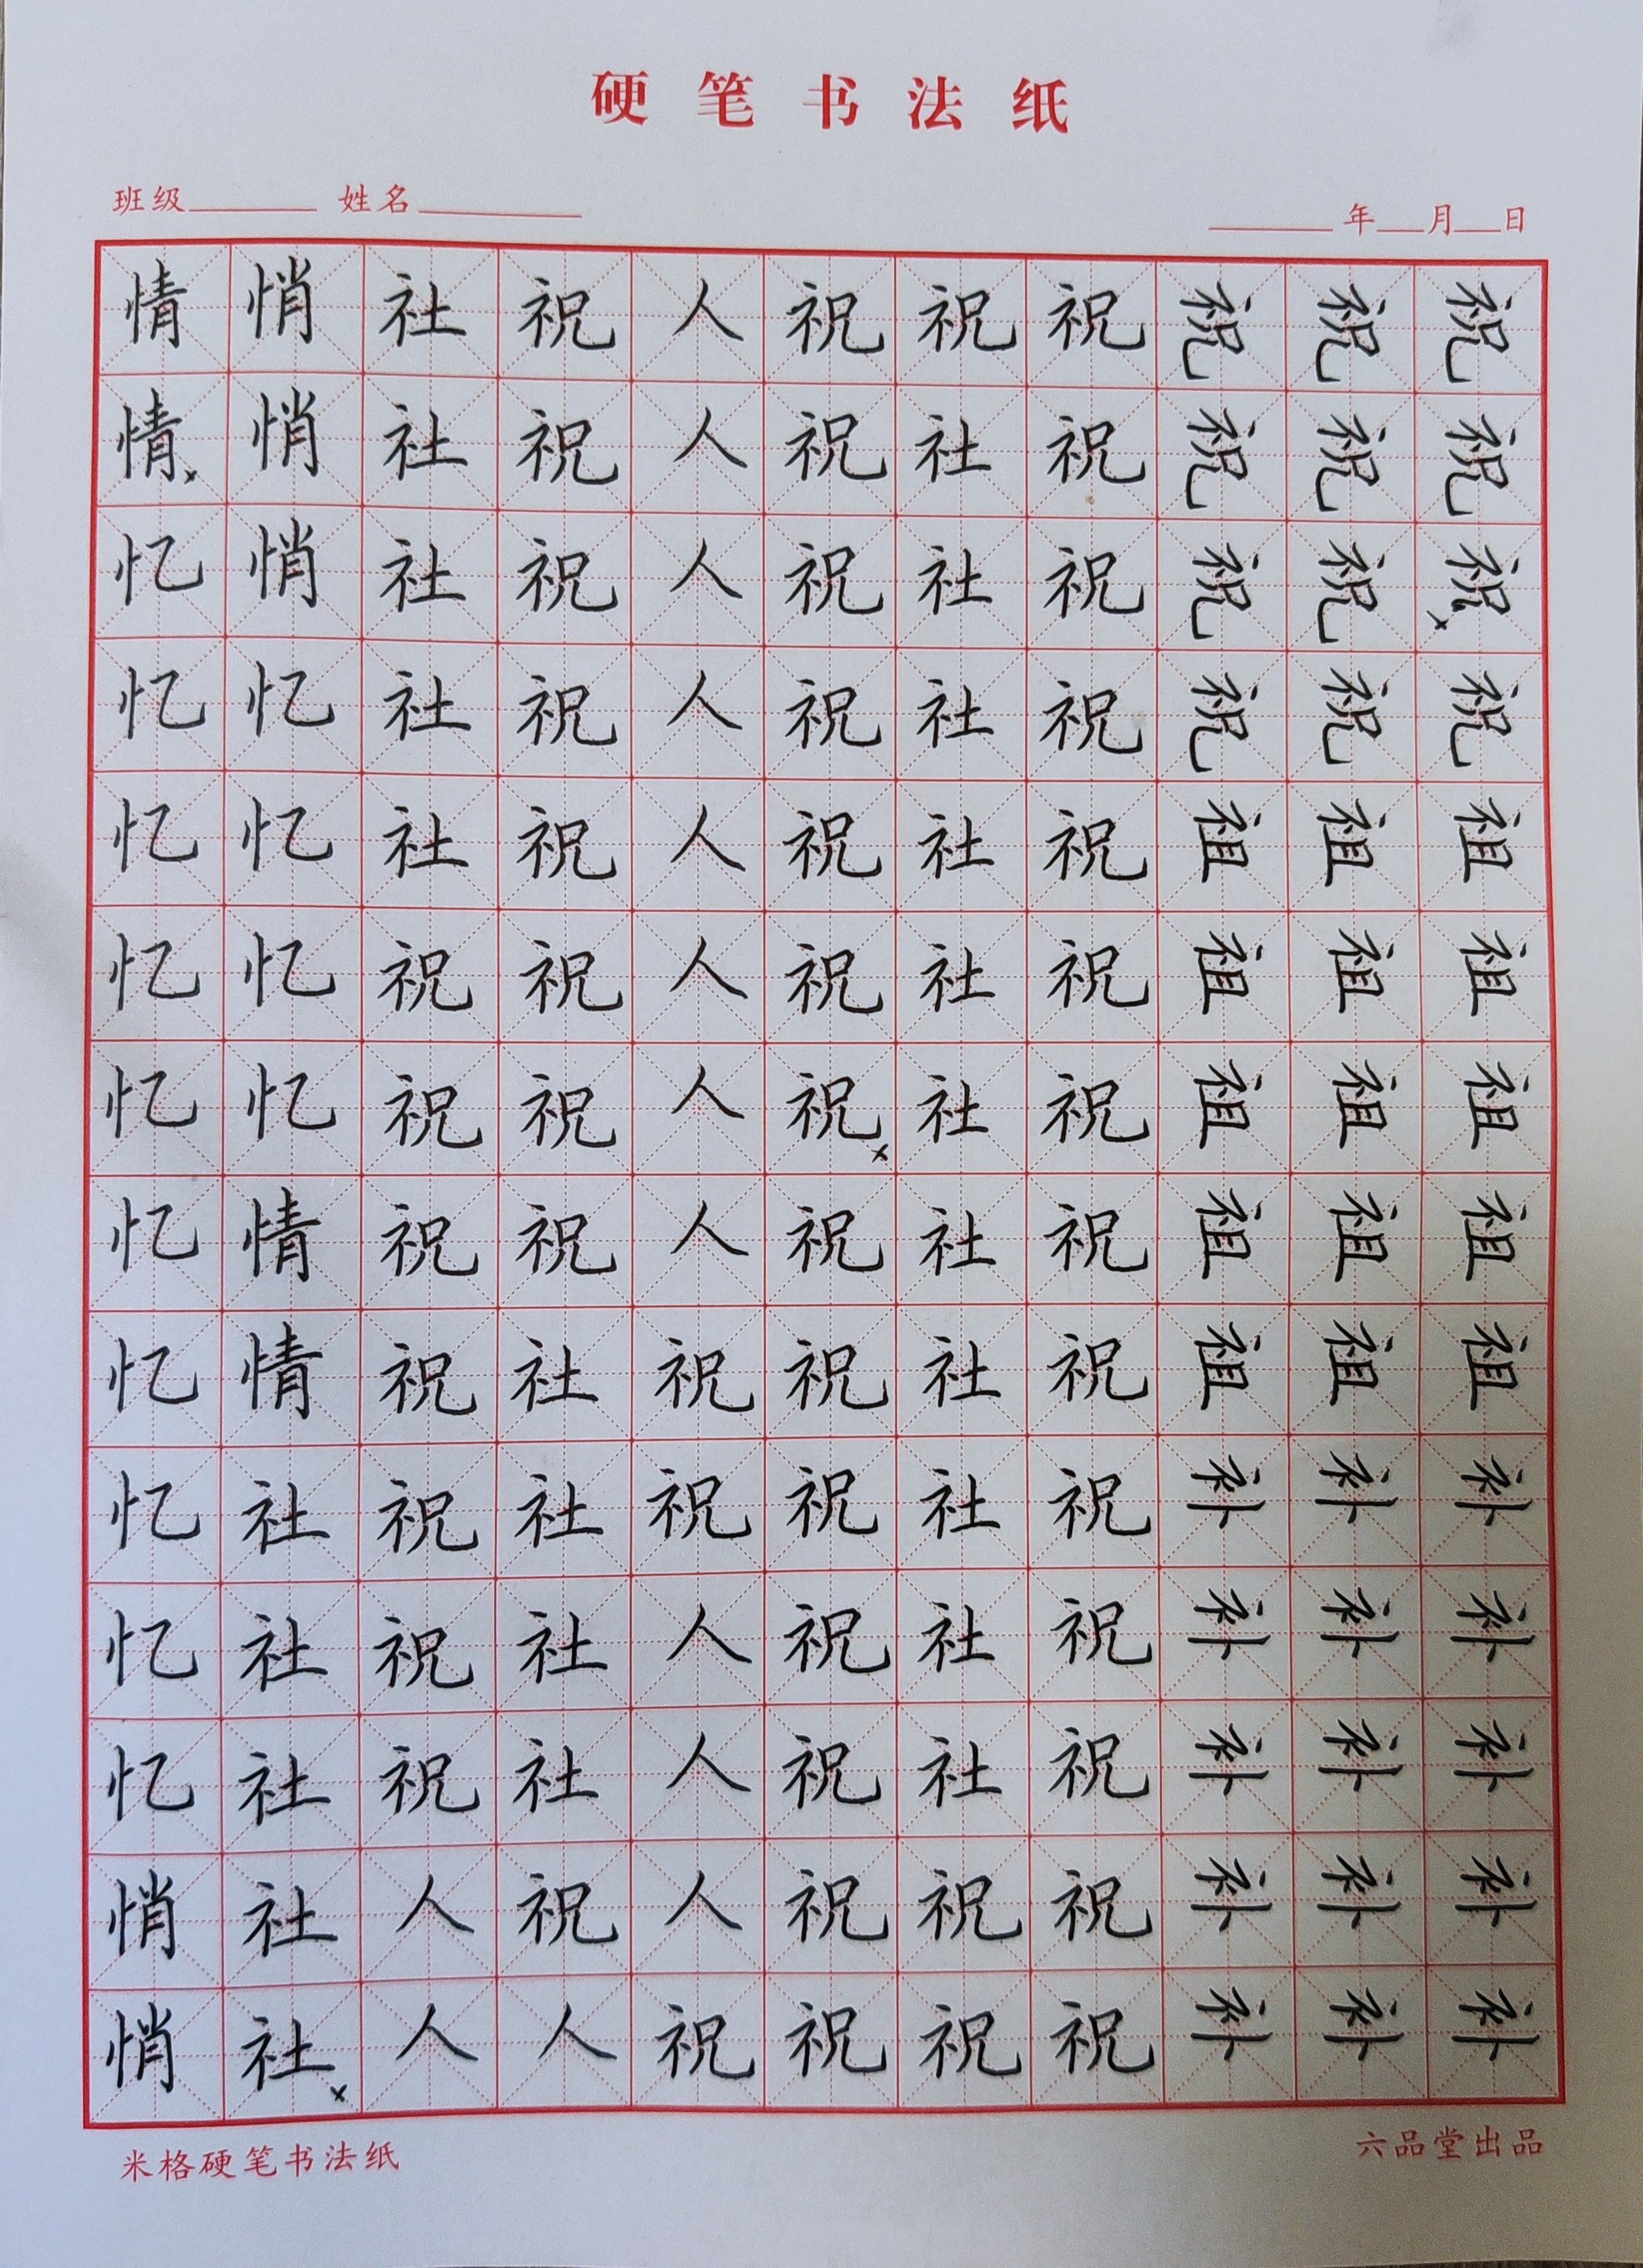 硬笔书法纸
班级 姓名 年 月 日
情 悄 社 祝 人 祝 祝 祝 祝 祝 祝
情 悄 社 祝 人 祝 社 祝 祝 祝 祝
忆 悄 社 祝 人 祝 社 祝 祝 祝 祝
忆 忆 社 祝 人 祝 社 祝 祝 祝 祝
忆 忆 社 祝 人 祝 社 祝 祖 祖 祖
忆 忆 祝 祝 人 祝 社 祝 祖 祖 祖
忆 忆 祝 祝 人 祝 社 祝 祖 祖 祖
忆 情 祝 祝 人 祝 社 祝 祖 祖 祖
忆 情 祝 社 祝 祝 社 祝 祖 祖 祖
忆 社 祝 社 祝 祝 社 祝 补 补 补
忆 社 祝 社 人 祝 社 祝 补 补 补
忆 社 祝 社 人 祝 社 祝 补 补 补
悄 社 人 祝 人 祝 祝 祝 补 补 补
悄 社 人 人 祝 祝 祝 祝 补 补 补
米格硬笔书法纸 六品堂出品